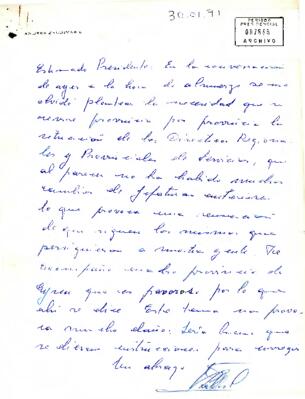 30.01.91
PERIODO
PRESIDENCIAL
ARCHIVO
Estimado Presidente: En la conversación
de ayer a la hora de almuerzo se me
olvidó plantear la necesidad que se
revise provincia por provincia la
situación de los Directores Regiona-
les y Provinciales de Servicios, que
al parecer no ha habido muchos
cambios de Jefaturas anteriores
lo que provoca una sensación
de que siguen los mismos que
persiguieron a nuestra gente. Te
acompaño cuadro provincia de
que es pavoroso por lo que
ahí se dice. Este tema nos provo-
ca mucho daño. Sería bueno que
se dieran instrucciones para corregir
Un abrazo